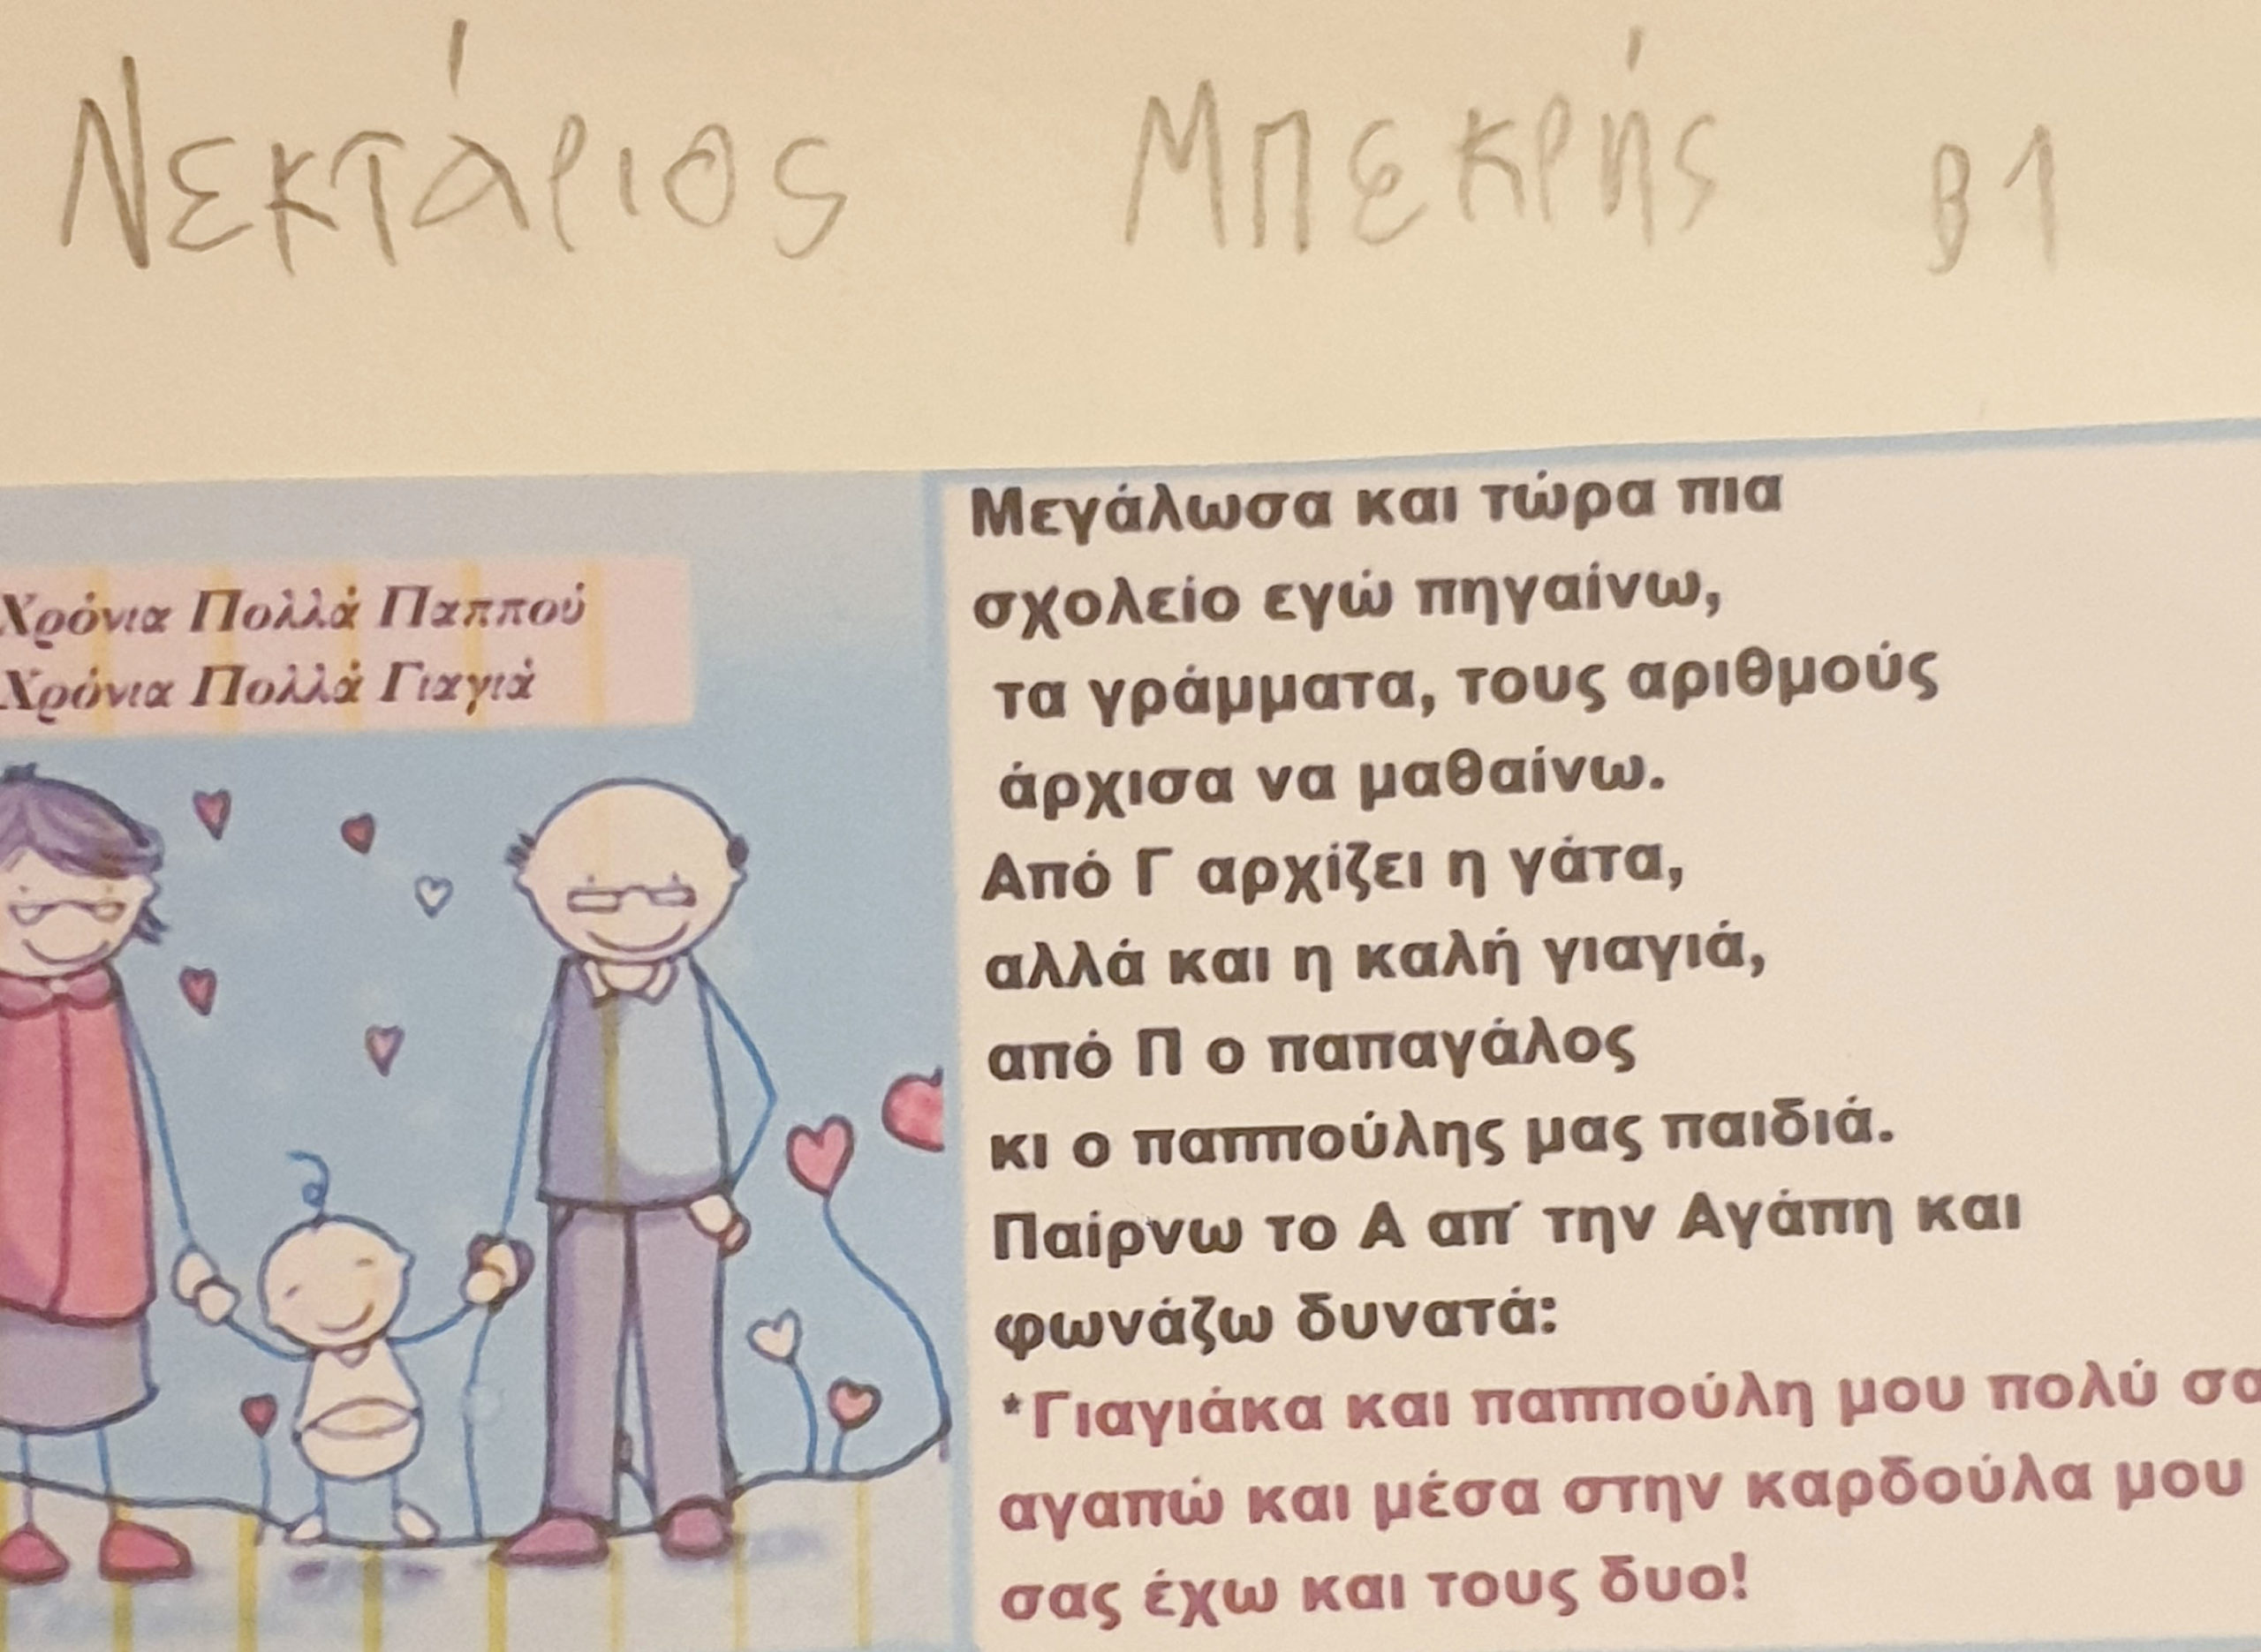 Νεκτάριος Μπεκρής β1
Χρόνια Πολλά Παππού
Χρόνια Πολλά Γιαγιά
Μεγάλωσα και τώρα πια
σχολείο εγώ πηγαίνω,
τα γράμματα, τους αριθμούς
άρχισα να μαθαίνω.
Από Γ αρχίζει η γάτα,
αλλά και η καλή γιαγιά,
από Π ο παπαγάλος
κι ο παππούλης μας παιδιά.
Παίρνω το Α απ΄ την Αγάπη και
φωνάζω δυνατά:
*Γιαγιάκα και παππούλη μου πολύ
αγαπώ και μέσα στην καρδούλα μου
σας έχω και τους δυο!